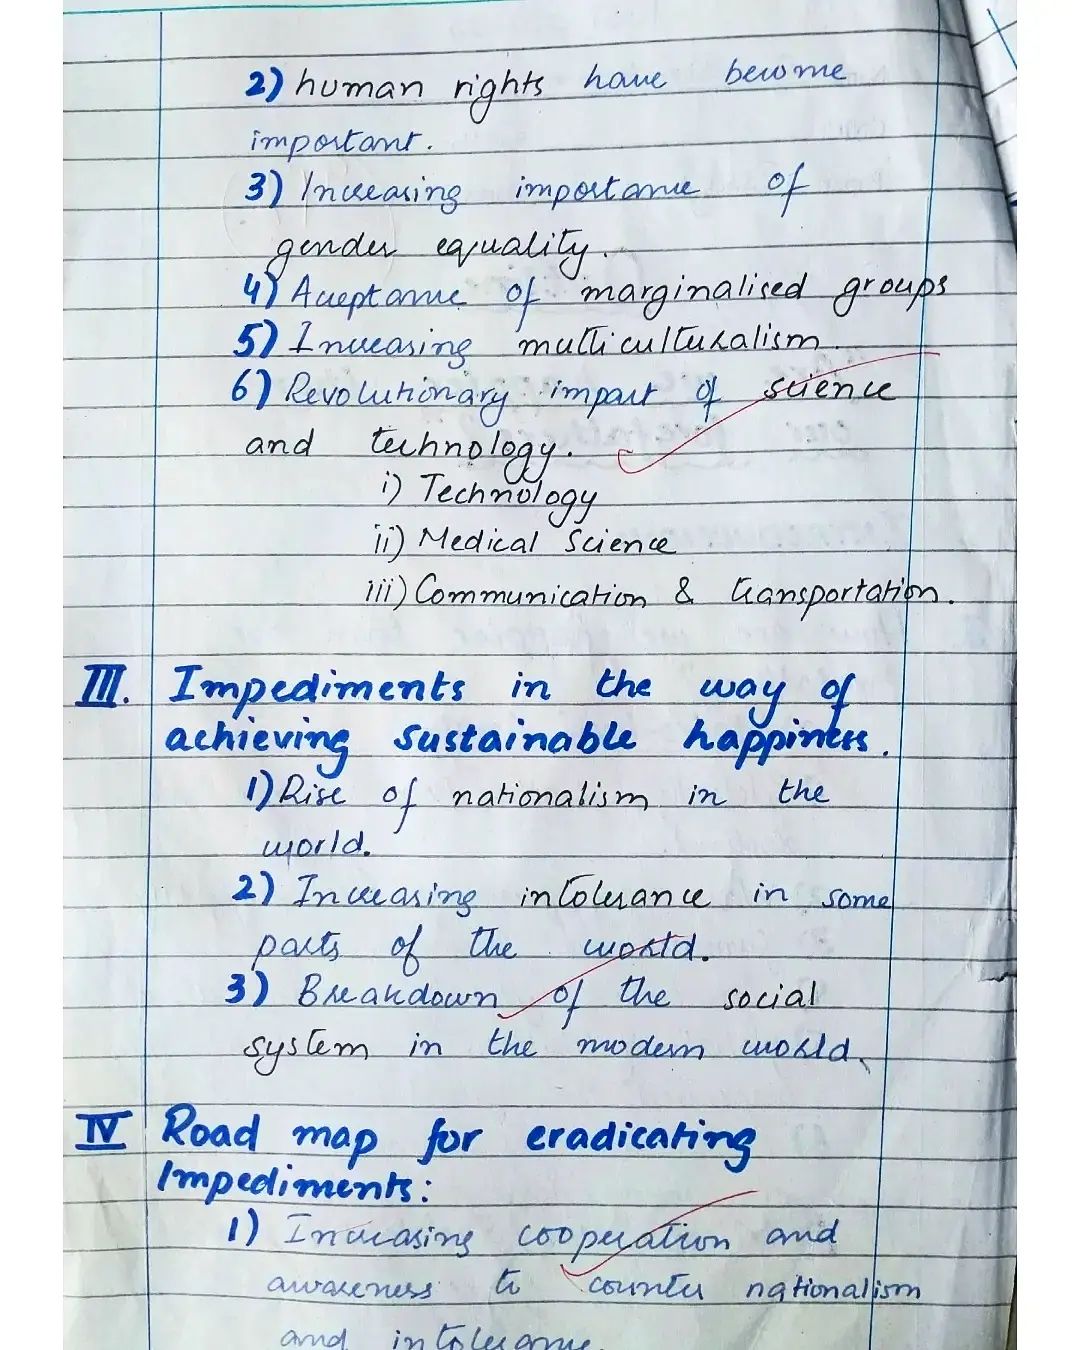 2) human rights have become
important.
3) Increasing importance of
gender equality.
4) Acceptance of marginalised groups
5) Increasing multiculturalism.
6) Revolutionary impact of science
and technology.
i) Technology
ii) Medical Science
iii) Communication & transportation.
III. Impediments in the way of
achieving sustainable happiness.
1) Rise of nationalism in the
world.
2) Increasing intolerance in some
parts of the world.
3) Breakdown of the social
system in the modern world.
IV Road map for eradicating
Impediments:
1) Increasing cooperation and
awareness to counter nationalism
and intolerance.